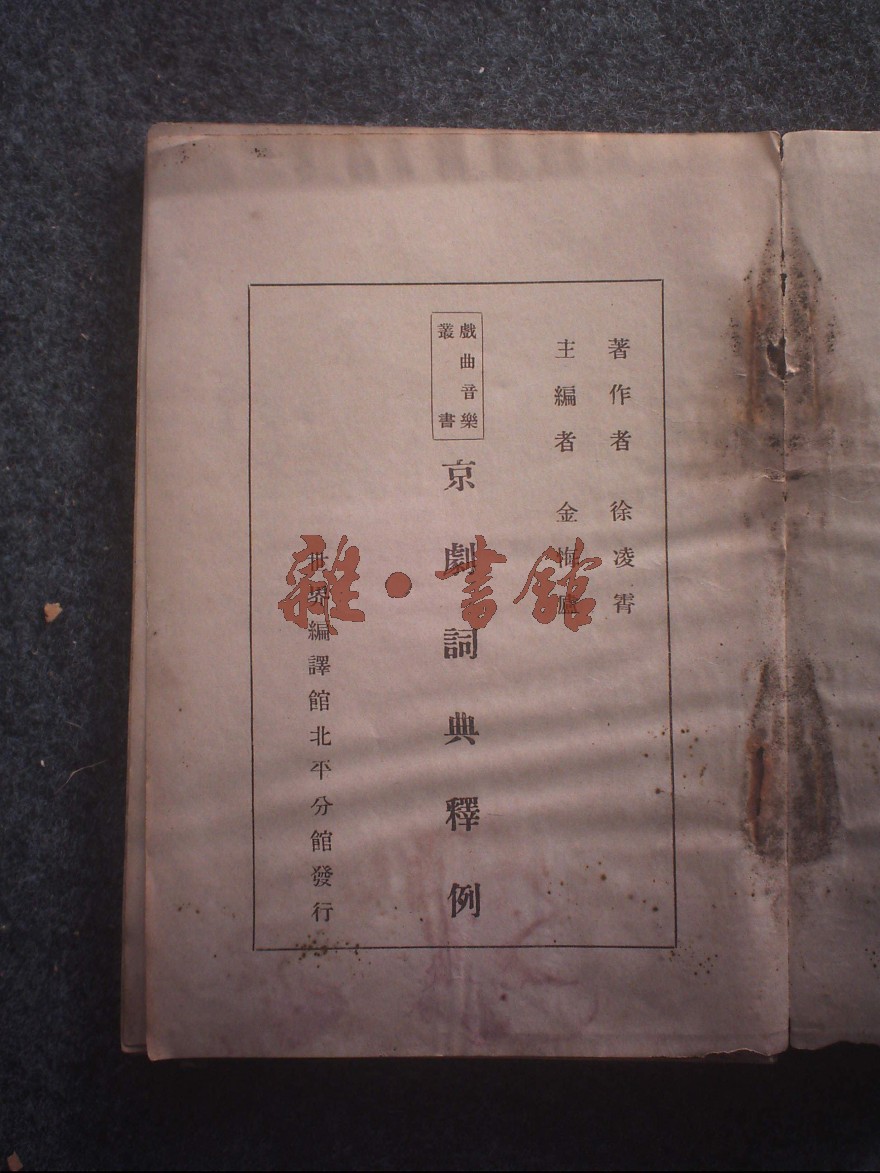 著作者 徐凌霄
主編者 金梅廬
戲曲音樂
叢書
京劇詞典釋例
世界編譯館北平分館發行
雜·書館